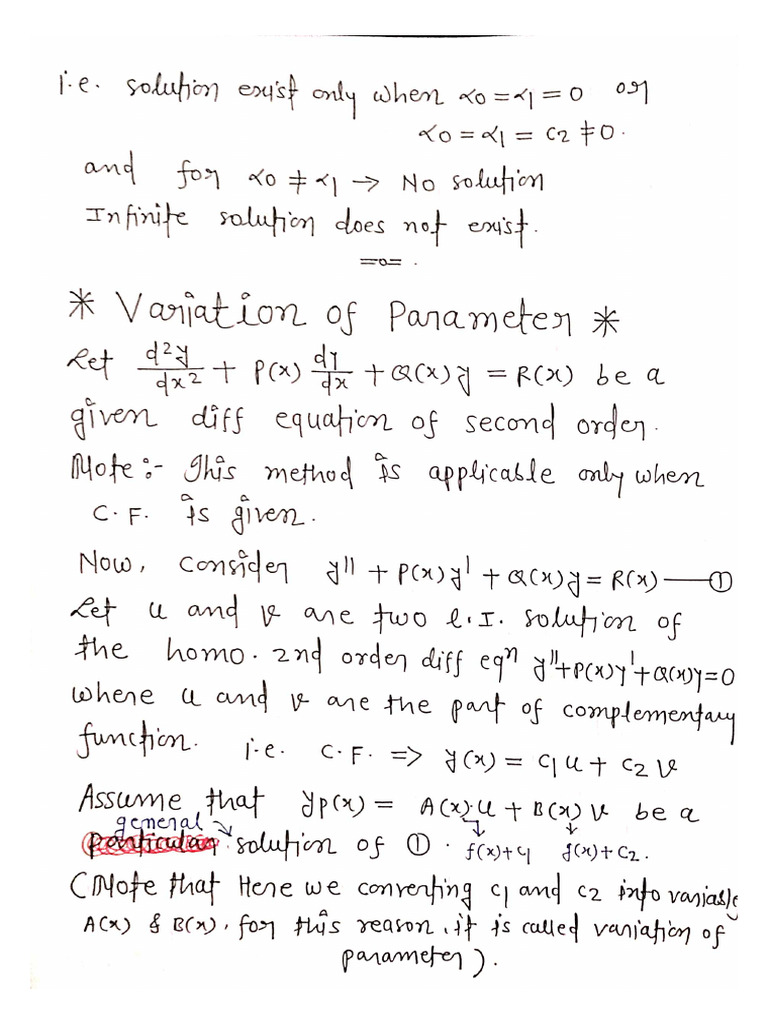 i.e. solution exist only when α0 = α1 = 0 or
α0 = α1 = c2 ≠ 0.
and for α0 ≠ α1 → No solution
Infinite solution does not exist.
=o= .
* Variation of Parameter *
Let d²y/dx² + P(x) dy/dx + Q(x) y = R(x) be a
given diff equation of second order.
Note:- This method is applicable only when
C.F. is given.
Now, consider y'' + P(x)y' + Q(x)y = R(x) —— ①
Let u and v are two l.I. solution of
the homo. 2nd order diff eqⁿ y''+P(x)y'+Q(x)y=0
where u and v are the part of complementary
function. i.e. C.F. => y(x) = c1 u + c2 v
Assume that yp(x) = A(x).u + B(x) v be a
general
perticular solution of ① . f(x)+c1 g(x)+c2.
(Note that Here we converting c1 and c2 into variable
A(x) & B(x), for this reason, it is called variation of
parameter).